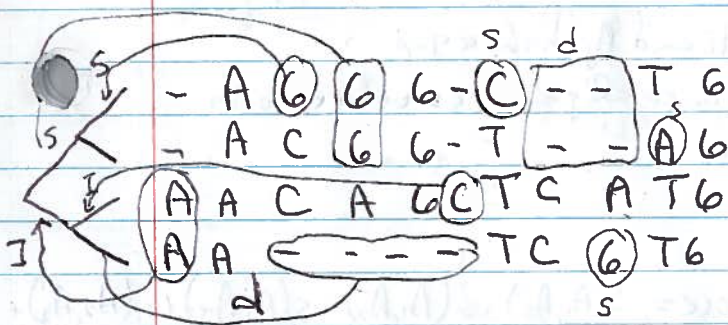 s d
S - A G G G - C - - T G
s
S - A C G G - T - - A G
I A A C A G C T C A T G
I A A - - - - T C G T G
d s